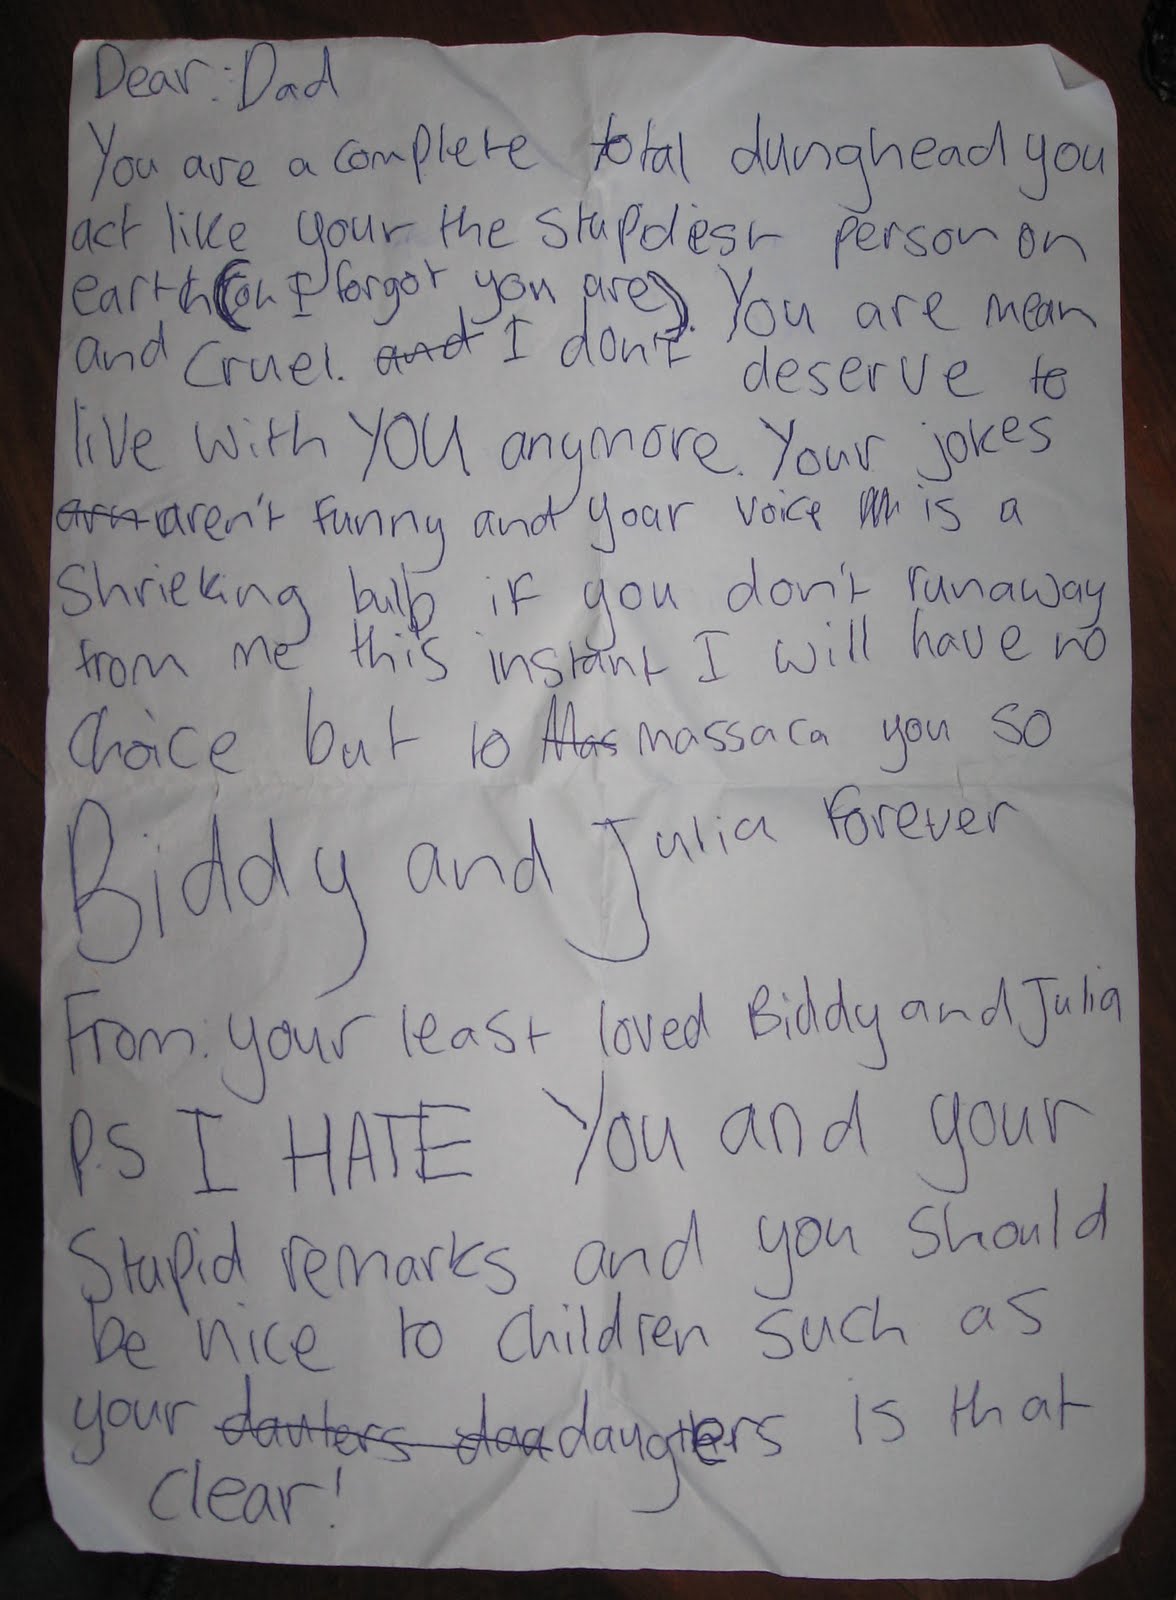 Dear: Dad
You are a complete total dunghead you
act like your the stupdiest person on
earth (oh I forgot you are). You are mean
and cruel. and I don't deserve to
live with YOU anymore. Your jokes
arn aren't funny and your voice is a
Shrieking bulb if you don't runaway
from me this instant I will have no
choice but to Mas massaca you so
Biddy and Julia forever
From: your least loved Biddy and Julia
P.S I HATE You and your
Stupid remarks and you should
be nice to children such as
your dauters daa daugters is that
clear!